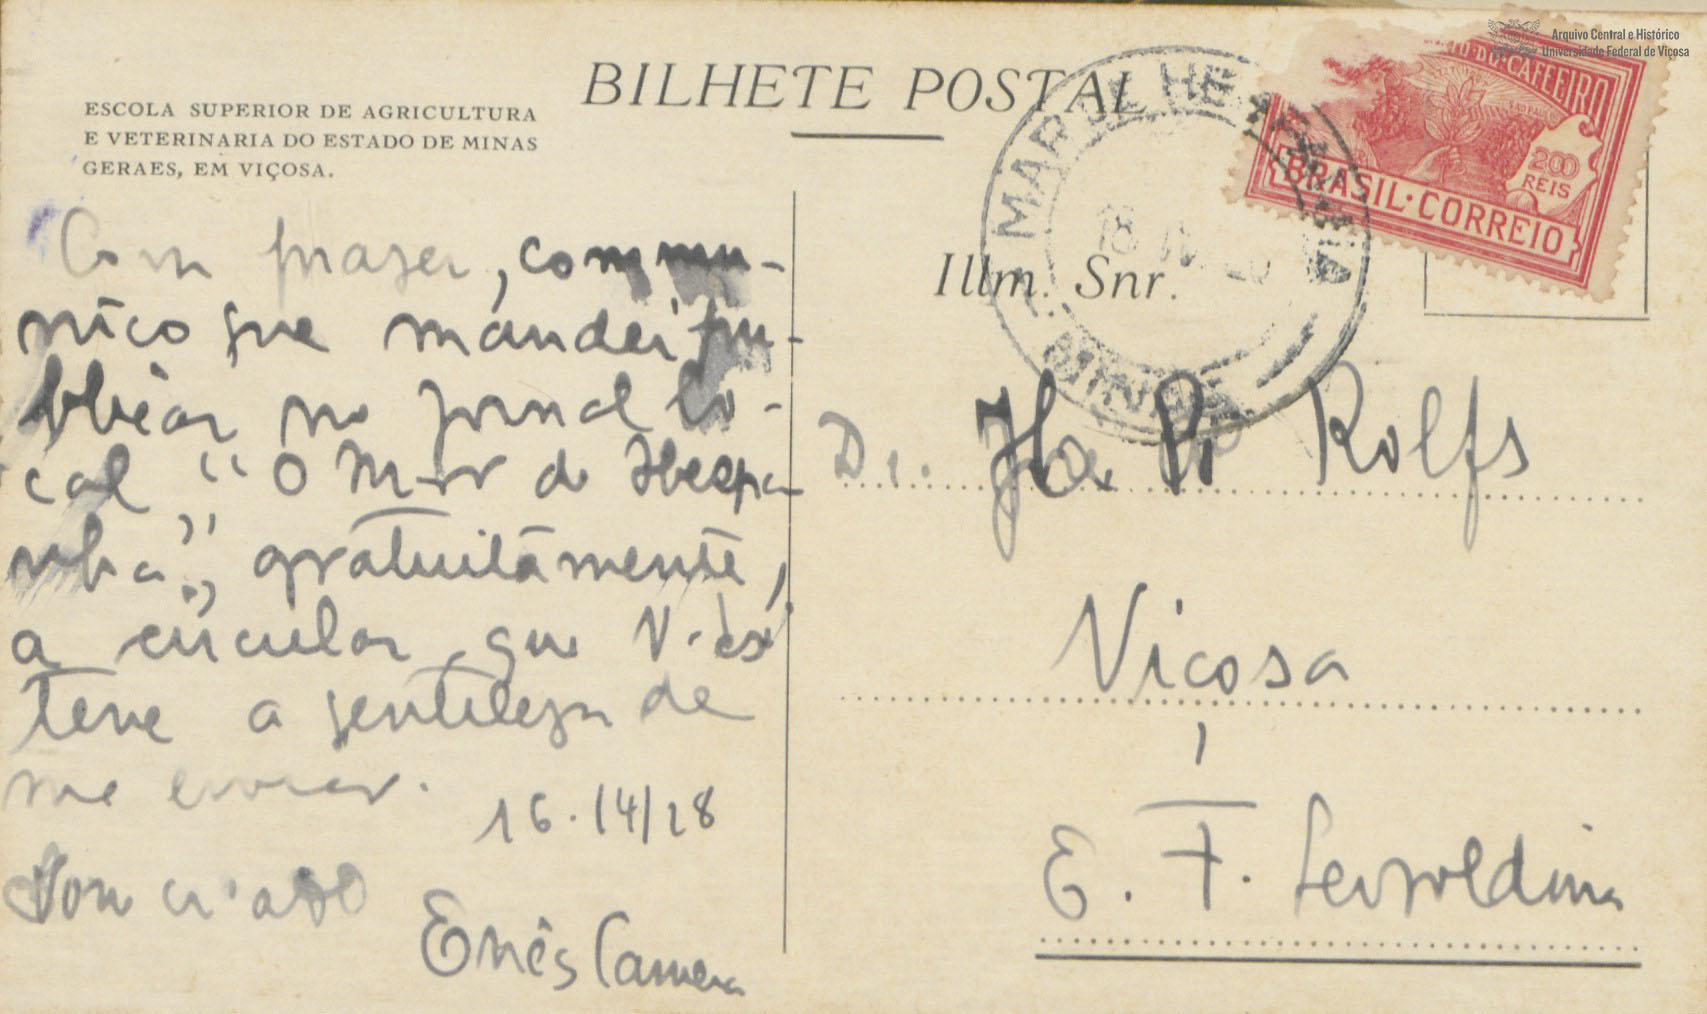 Arquivo Central e Histórico
Universidade Federal de Viçosa
BILHETE POSTAL
ESCOLA SUPERIOR DE AGRICULTURA
E VETERINARIA DO ESTADO DE MINAS
GERAES, EM VIÇOSA.
DO CAFEEIRO
200
REIS
BRASIL·CORREIO
MAR DE HESPANHA
MINAS
18 IV
Com prazer, commu-
nico que mandei pu-
blicar no jornal lo-
cal "O Mar de Hespa-
nha", gratuitamente,
a circular que V. Ex
teve a gentileza de
me enviar.
16·14/28
criado
Enês Camera
Illm. Snr.
Dr. Rolfs
Viçosa
E. F. Leopoldina